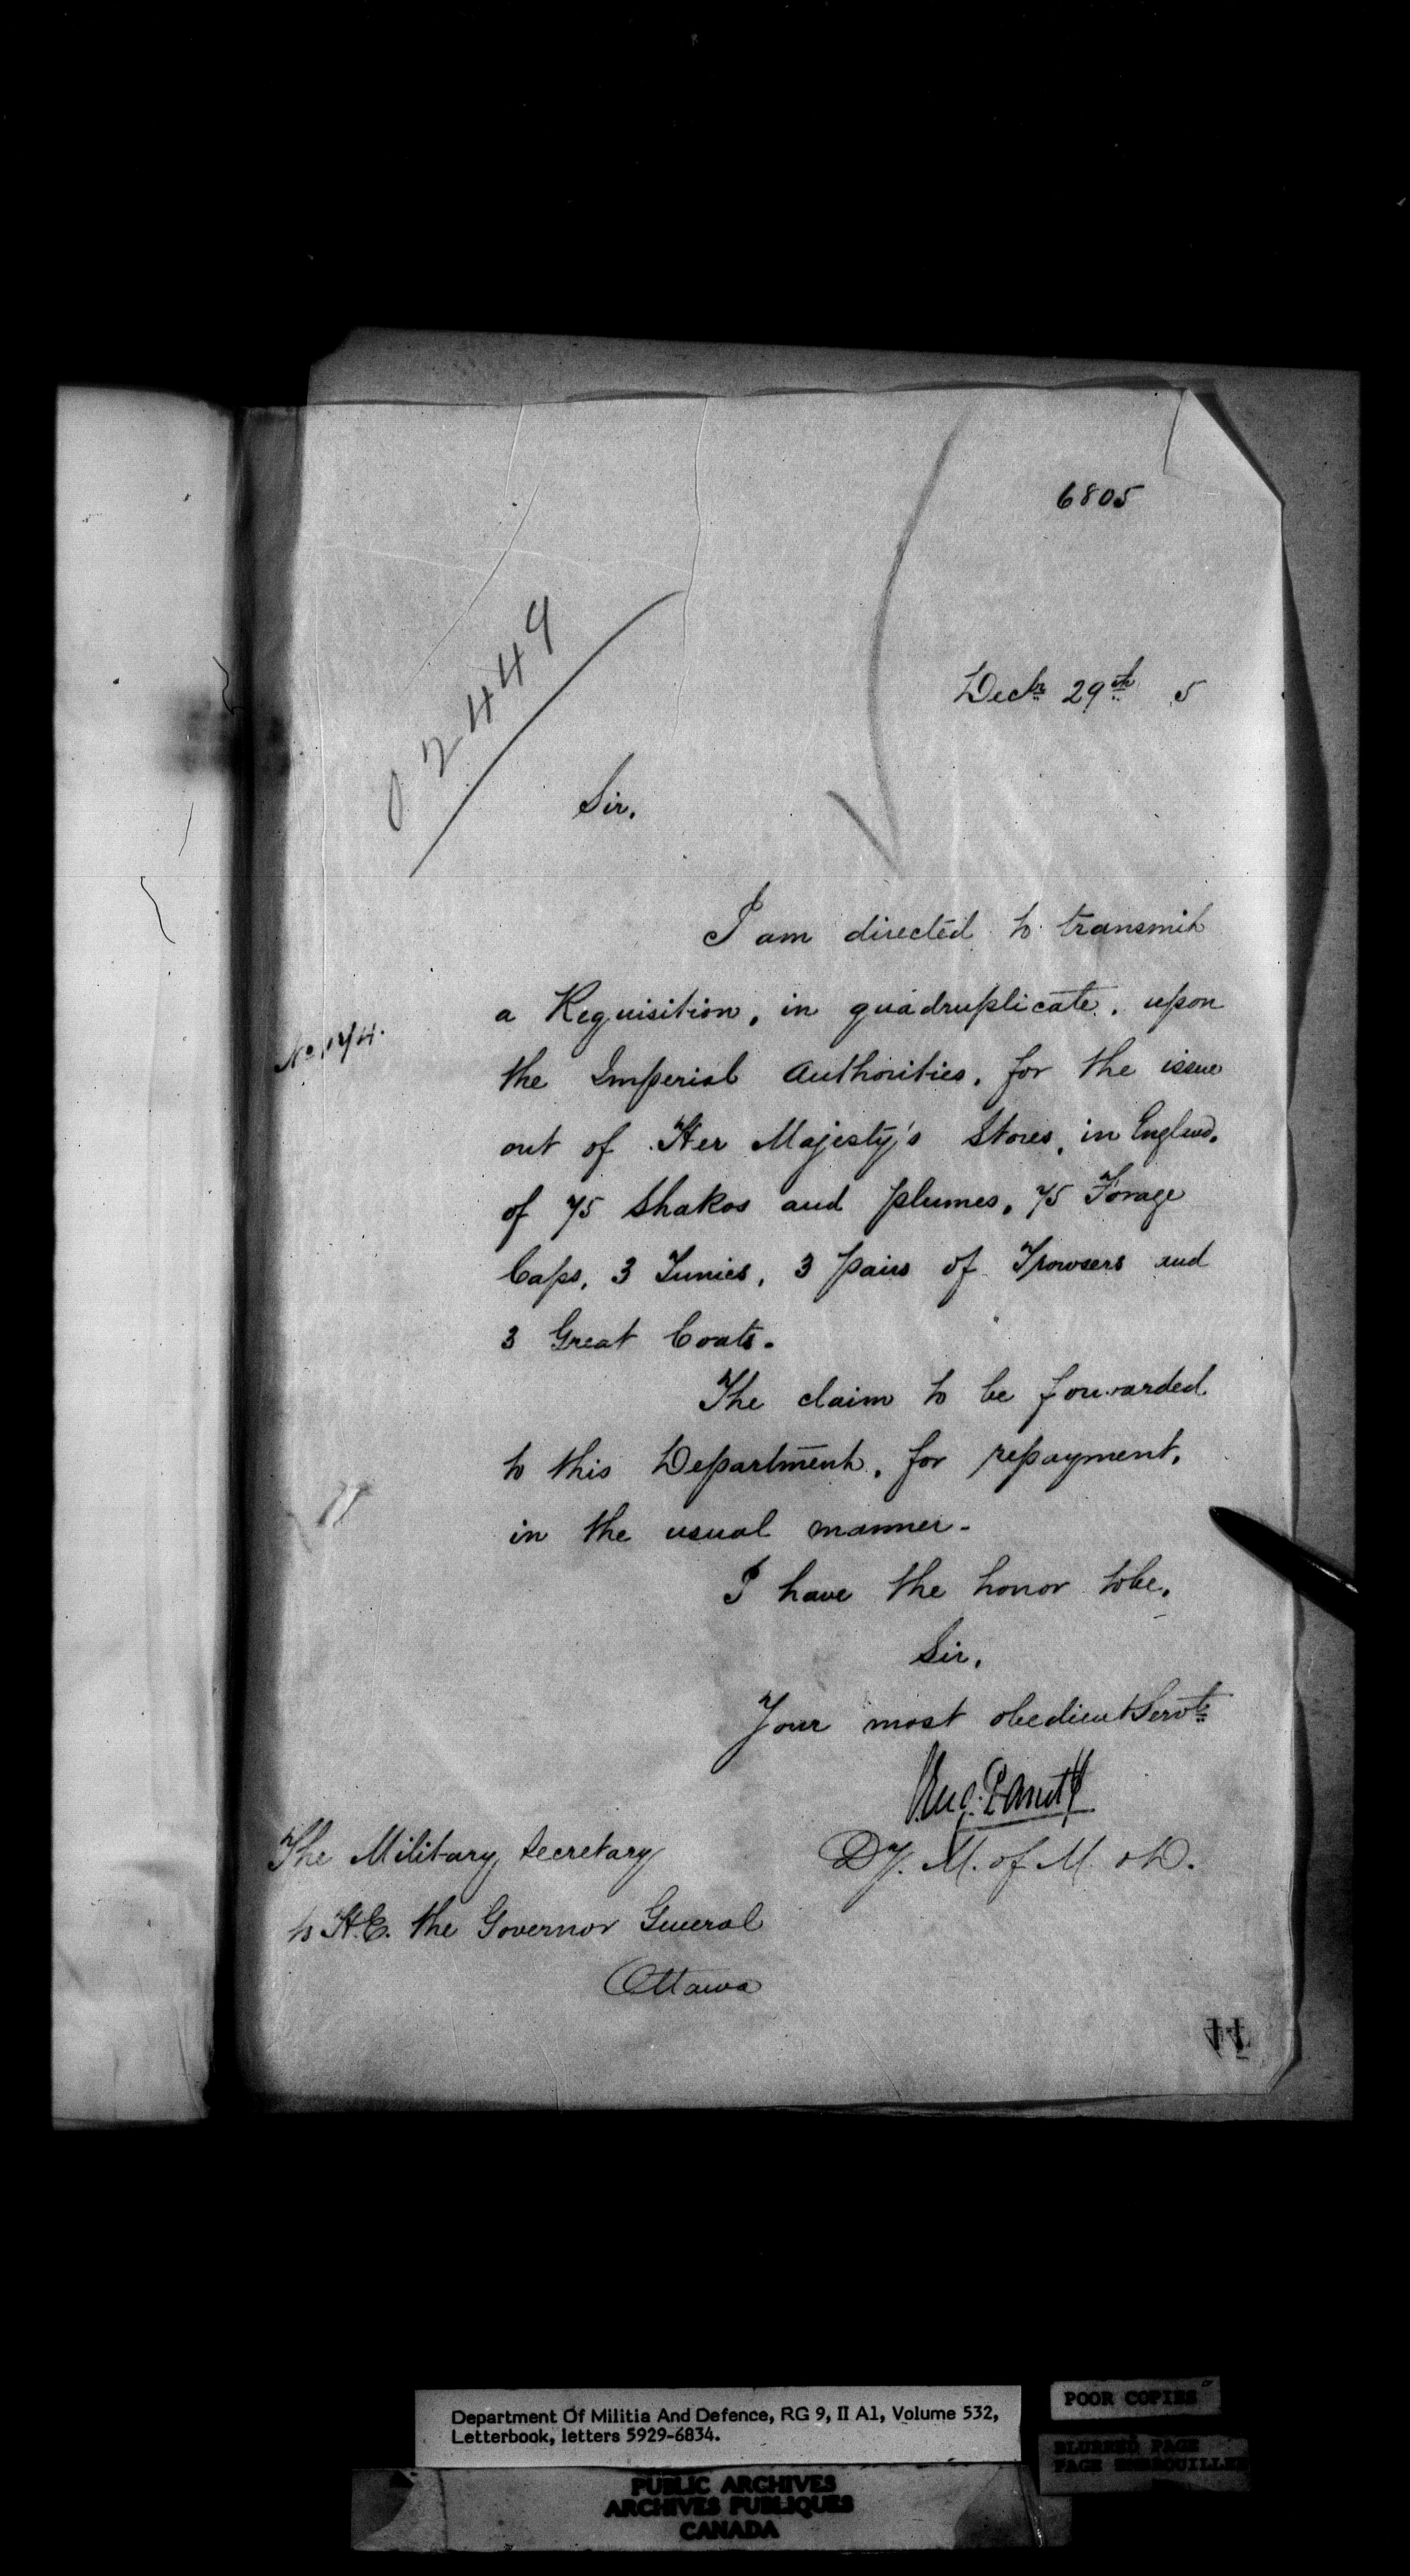 6805
02449
Decr 29th 5
Sir.
I am directed to transmit
a Requisition, in quadruplicate, upon
the Imperial Authorities, for the issue
out of Her Majesty's Stores, in England,
of 75 Shakos and plumes, 75 Forage
Caps, 3 Tunics, 3 pairs of Trowsers and
3 Great Coats.
The claim to be forwarded
to this Department, for repayment,
in the usual manner.
I have the honor to be,
Sir,
Your most obedient Servt
Panet
Dy. M. of M. & D.
The Military Secretary
to H.E. the Governor General
Ottawa
44
Department Of Militia And Defence, RG 9, II A1, Volume 532,
Letterbook, letters 5929-6834.
POOR COPIES
BLURRED PAGE
PAGE EMBROUILLEE
PUBLIC ARCHIVES
ARCHIVES PUBLIQUES
CANADA